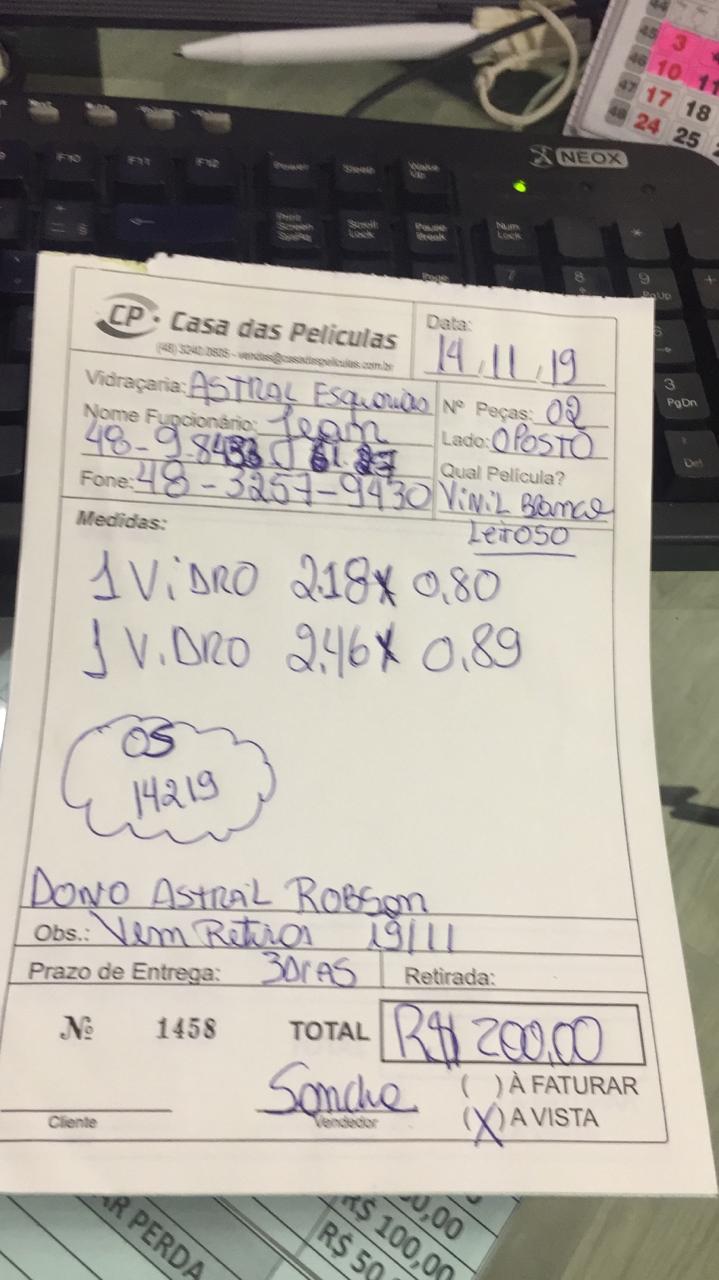 3
10 11
47 17 18
48 24 25
NEOX
F10 F11 F12 Power Sleep Wake Up
Print Screen SysRq Scroll Lock Pause Break Num Lock *
Page 7 8 9 +
PgUp
3
PgDn
Del
CP. Casa das Películas
(48) 3240.0805 - vendas@casadaspeliculas.com.br
Data:
14.11.19
Vidraçaria: ASTRAL
Nº Peças: 02
Nome Funcionário: Jean
Lado: OPOSTO
48-9.84
Qual Película?
Fone: 48-3257-9430
ViNiL Branco
Leitoso
Medidas:
1 ViDRO 2.18 x 0,80
1 ViDRO 2,46 x 0,89
OS
14219
DONO ASTRAiL ROBSON
Obs.: Vem Retirar 19/11
Prazo de Entrega: 3DiAS Retirada:
Nº 1458 TOTAL R$ 200,00
( ) À FATURAR
(X) A VISTA
Cliente Vendedor
AR PERDA
R$ 100,00
R$ 50